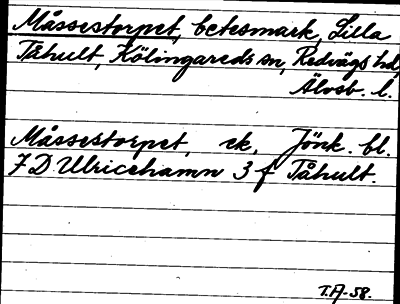 Måssestorpet, betesmark, Lilla
Tåhult, Kölingareds sn, Redvägs hd,
Älvsb. l.
Måssestorpet, ek. Jönk. bl.
7 D Ulricehamn 3 f Tåhult.
T.A-58.